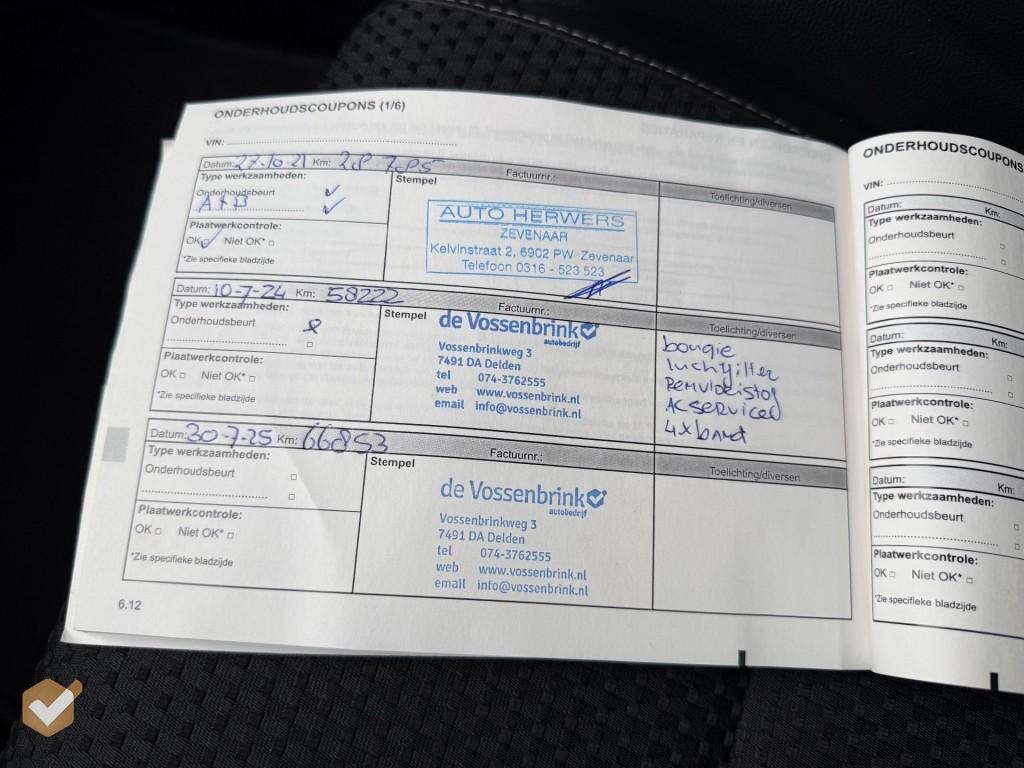 ONDERHOUDSCOUPONS (1/6)
VIN:
Datum: 27-10-21 Km: 28 785 Factuurnr.:
Type werkzaamheden:
Onderhoudsbeurt
A + B
Plaatwerkcontrole:
OK Niet OK*
*Zie specifieke bladzijde
Stempel
AUTO HERWERS
ZEVENAAR
Kelvinstraat 2, 6902 PW Zevenaar
Telefoon 0316 - 523 523
Toelichting/diversen
Datum: 10-7-24 Km: 58222 Factuurnr.:
Type werkzaamheden:
Onderhoudsbeurt
Plaatwerkcontrole:
OK Niet OK*
*Zie specifieke bladzijde
Stempel
de Vossenbrink
autobedrijf
Vossenbrinkweg 3
7491 DA Delden
tel 074-3762555
web www.vossenbrink.nl
email info@vossenbrink.nl
Toelichting/diversen
bougie
luchtfilter
Remvloeistof
AC service
4x band
Datum: 30-7-25 Km: 66853 Factuurnr.:
Type werkzaamheden:
Onderhoudsbeurt
Plaatwerkcontrole:
OK Niet OK*
*Zie specifieke bladzijde
Stempel
de Vossenbrink
autobedrijf
Vossenbrinkweg 3
7491 DA Delden
tel 074-3762555
web www.vossenbrink.nl
email info@vossenbrink.nl
Toelichting/diversen
6.12
ONDERHOUDSCOUPONS
VIN:
Datum: Km:
Type werkzaamheden:
Onderhoudsbeurt
Plaatwerkcontrole:
OK Niet OK*
*Zie specifieke bladzijde
Datum: Km:
Type werkzaamheden:
Onderhoudsbeurt
Plaatwerkcontrole:
OK Niet OK*
*Zie specifieke bladzijde
Datum: Km:
Type werkzaamheden:
Onderhoudsbeurt
Plaatwerkcontrole:
OK Niet OK*
*Zie specifieke bladzijde